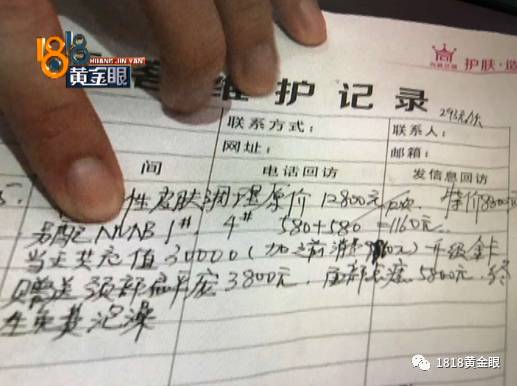 1818
HUANG JIN YAN
黄金眼
护肤·造
维护记录
293元/次
联系方式： 联系人：
网址： 邮箱：
间 电话回访 发信息回访
性皮肤 原价12800元 特价8800元
另配NMB 1# 4# 580+580=1160元
当天共充值30000(加之前消费 元)升级金卡
赠送颈部 3800元 5800元 终
生免费泡澡
1818黄金眼